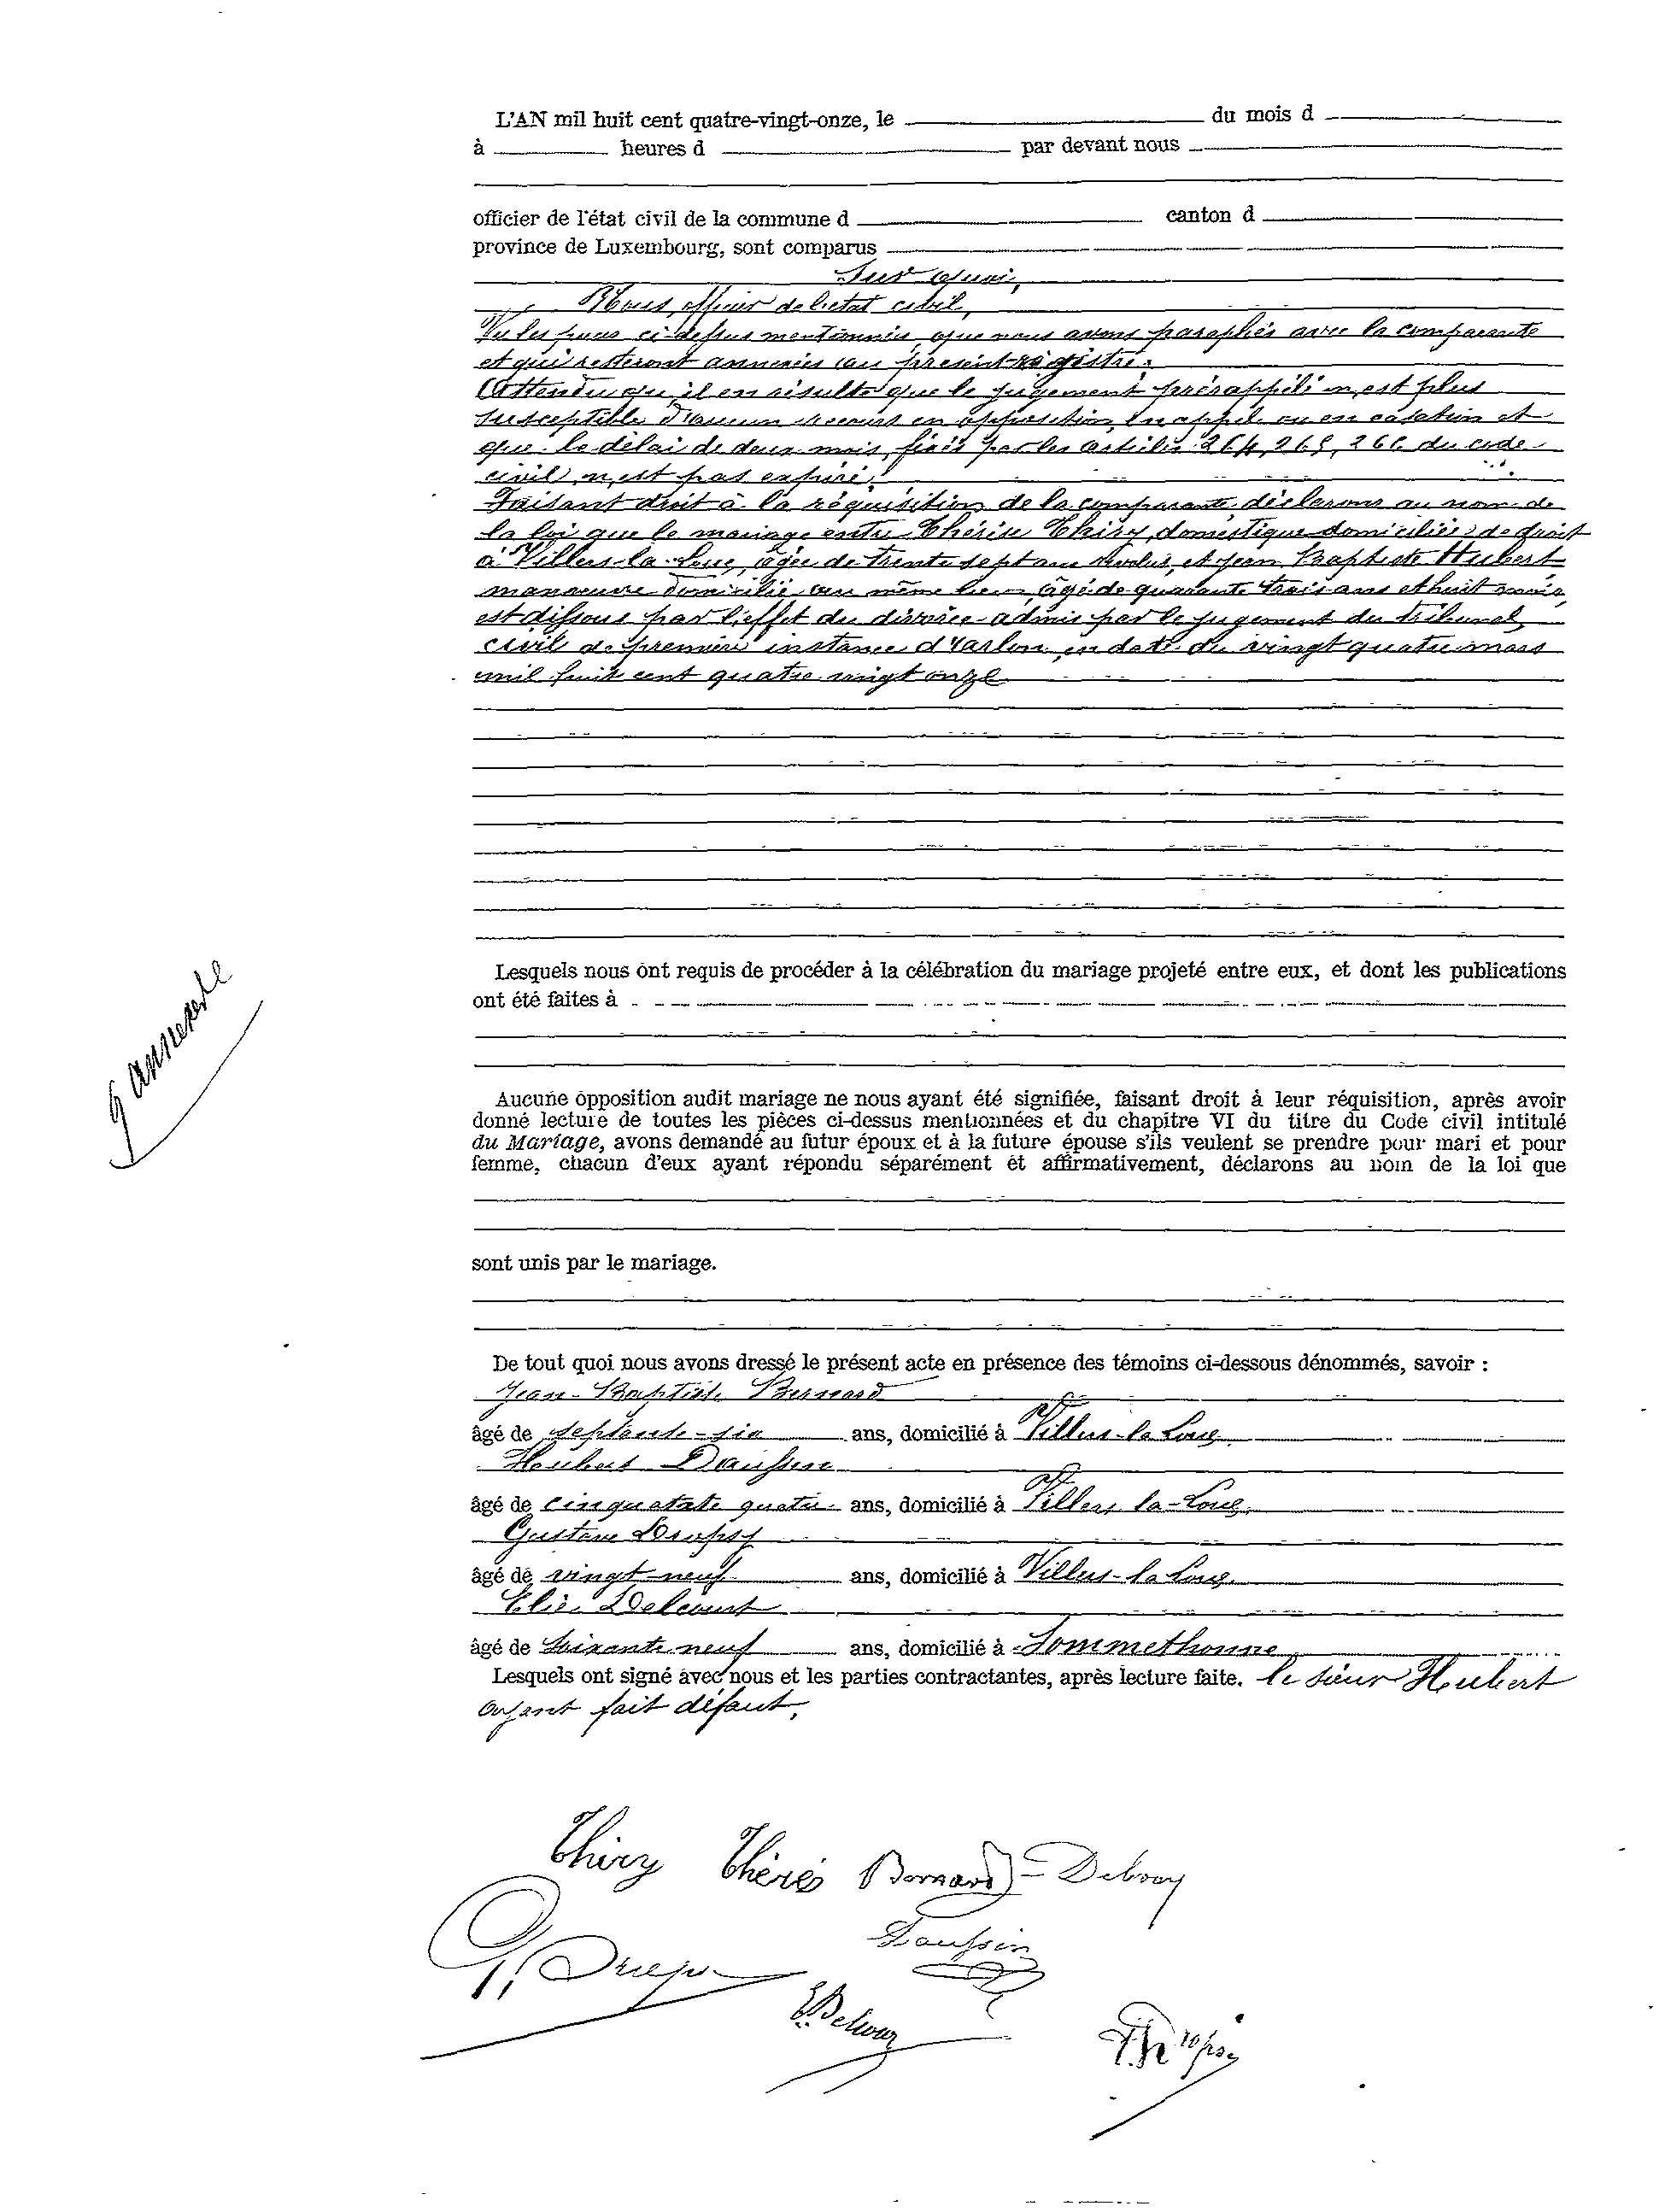 L'AN mil huit cent quatre-vingt-onze, le du mois d
à heures d par devant nous
officier de l'état civil de la commune d canton d
province de Luxembourg, sont comparus
Sur quoi,
Nous, officier de l'état civil,
Vu les pièces ci-dessus mentionnées, que nous avons paraphées avec la comparante
et qui resteront annexées au présent registre.
Attendu qu'il en résulte que le jugement prérappelé n'est plus
susceptible d'aucun recours en opposition, en appel ou en cassation et
que le délai de deux mois, fixé par les articles 264, 265, 266 du code
civil, n'est pas expiré.
Faisant droit à la réquisition de la comparante déclarons au nom de
la loi que le mariage entre Thérèse Thiry, domestique domiciliée de droit
à Villers-la-Loue, âgée de trente sept ans révolus, et Jean Baptiste Hubert
manoeuvre domicilié au même lieu, âgé de quarante trois ans et huit mois,
est dissous par l'effet du divorce admis par le jugement du tribunal
civil de première instance d'Arlon en date du vingt quatre mars
mil huit cent quatre vingt onze
Lesquels nous ont requis de procéder à la célébration du mariage projeté entre eux, et dont les publications
ont été faites à
9 annexes
Aucune opposition audit mariage ne nous ayant été signifiée, faisant droit à leur réquisition, après avoir
donné lecture de toutes les pièces ci-dessus mentionnées et du chapitre VI du titre du Code civil intitulé
du Mariage, avons demandé au futur époux et à la future épouse s'ils veulent se prendre pour mari et pour
femme, chacun d'eux ayant répondu séparément et affirmativement, déclarons au nom de la loi que
sont unis par le mariage.
De tout quoi nous avons dressé le présent acte en présence des témoins ci-dessous dénommés, savoir :
Jean-Baptiste Bernard
âgé de septante-six ans, domicilié à Villers-la-Loue
Hubert Daussin
âgé de cinquante quatre ans, domicilié à Villers-la-Loue
Gustave Dropsy
âgé de vingt-neuf ans, domicilié à Villers-la-Loue
Elie Delcourt
âgé de soixante neuf ans, domicilié à Sommethonne
Lesquels ont signé avec nous et les parties contractantes, après lecture faite. le sieur Hubert
ayant fait défaut.
Thiry Thérès Bernard-Debroy
Daussin
G. Dropsy
E. Delcour